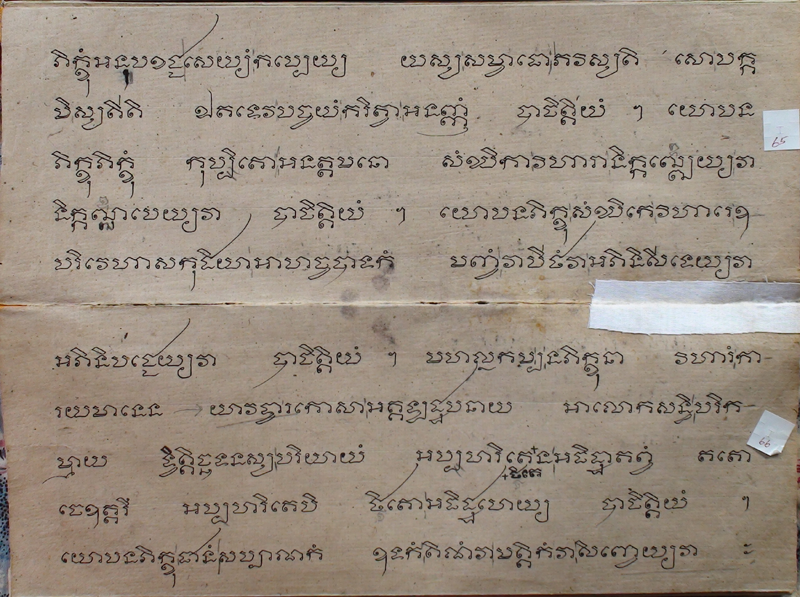 ភិក្ខុំអនុបខជ្ជសេយ្យំកប្បេយ្យ យស្សសម្ពាធោភវិស្សតិ សោបក្ក
មិស្សតីតិ ឯតទេវបច្ចយំករិត្វាអនញ្ញំ បាចិត្តិយំ ៗ យោបន
ភិក្ខុភិក្ខុំ កុប្បិតោអនត្តមនោ សំឃិកាវិហារានិក្កឌ្ឍេយ្យវា
និក្កឌ្ឍាបេយ្យវា បាចិត្តិយំ ៗ យោបនភិក្ខុសំឃិកេវិហារេឧ
បរិវេហាសកុដិយាអាហច្ចបាទកំ មញ្ចំវាបីឋំវាអភិនិសីទេយ្យវា
អភិនិបជ្ជេយ្យវា បាចិត្តិយំ ៗ មហល្លកម្បនភិក្ខុនា វិហារំកា
រយមានេន យាវទ្វារកោសាអគ្គឡដ្ឋបនាយ អាលោកសន្ធិបរិក
ម្មាយ ទ្វិត្តិច្ឆទនស្សបរិយាយំ អប្បហរិតេឋិតេនអធិដ្ឋាតព្វំ តតោ
ចេឧត្តរិ អប្បហរិតេបិ ឋិតោអធិដ្ឋហេយ្យ បាចិត្តិយំ ៗ
យោបនភិក្ខុជានំសប្បាណកំ ឧទកំតិណំវាមត្តិកំវាសិញ្ចេយ្យវា
65
66